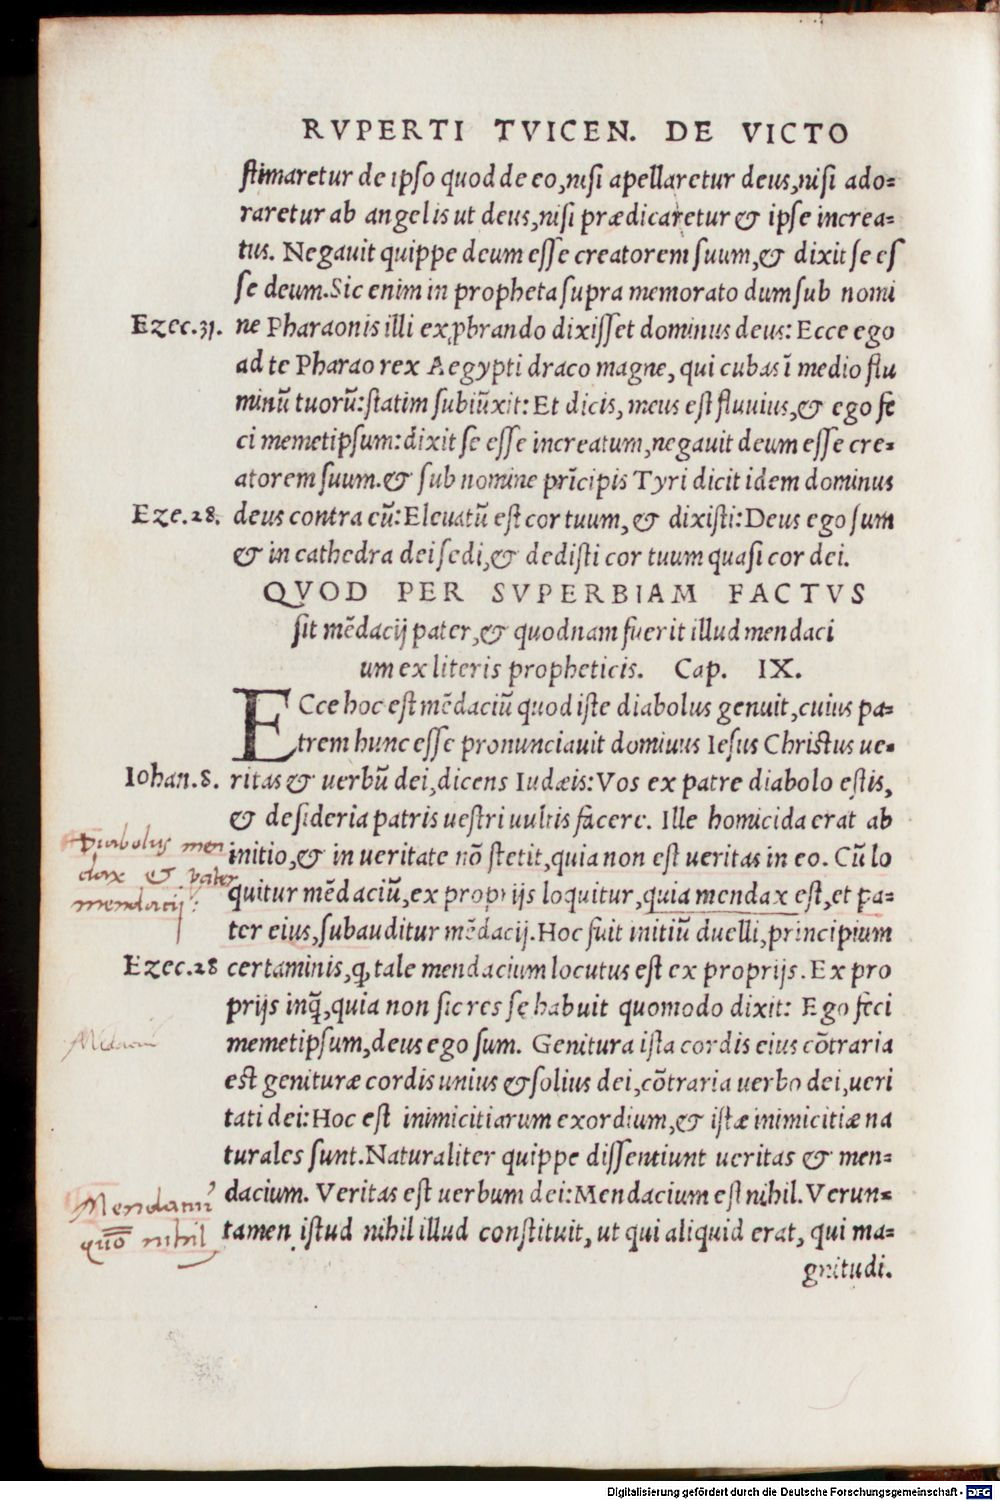 RVPERTI TVICEN. DE VICTO
stimaretur de ipso quod de eo,nisi apellaretur deus,nisi ado=
raretur ab angelis ut deus,nisi prædicaretur & ipse increa=
tus. Negauit quippe deum esse creatorem suum,& dixit se es
se deum.Sic enim in propheta supra memorato dum sub nomi
Ezec.31. ne Pharaonis illi exꝓbrando dixisset dominus deus: Ecce ego
ad te Pharao rex Aegypti draco magne, qui cubas ī medio flu
minū tuorū:statim subiūxit: Et dicis, meus est fluuius,& ego fe
ci memetipsum:dixit se esse increatum,negauit deum esse cre=
atorem suum.& sub nomine prīcipis Tyri dicit idem dominus
Eze.28. deus contra eū:Eleuatū est cor tuum, & dixisti:Deus ego sum
& in cathedra dei sedi,& dedisti cor tuum quasi cor dei.
QVOD PER SVPERBIAM FACTVS
sit mēdacij pater,& quodnam fuerit illud mendaci
um ex literis propheticis. Cap. IX.
ECce hoc est mēdaciū quod iste diabolus genuit,cuius pa=
trem hunc esse pronunciauit domiuus Iesus Christus ue=
Iohan.8. ritas & uerbū dei,dicens Iudæis:Vos ex patre diabolo estis,
& desideria patris uestri uultis facere. Ille homicida erat ab
Diabolus men
initio,& in ueritate nō stetit,quia non est ueritas in eo. Cū lo
dax & pater
quitur mēdaciū,ex proprijs loquitur,quia mendax est,et pa=
mendacij:
ter eius,subauditur mēdacij.Hoc fuit initiū duelli,principium
Ezec.28 certaminis,ꝙ tale mendacium locutus est ex proprijs. Ex pro
prijs inq̄,quia non sic res se habuit quomodo dixit: Ego feci
memetipsum,deus ego sum. Genitura ista cordis eius cōtraria
est genituræ cordis unius & solius dei,cōtraria uerbo dei,ueri
tati dei:Hoc est inimicitiarum exordium,& istæ inimicitiæ na
turales sunt.Naturaliter quippe dissentiunt ueritas & men=
dacium. Veritas est uerbum dei:Mendacium est nihil. Verun=
tamen istud nihil illud constituit, ut qui aliquid erat, qui ma=
quō nihil
gnitudi.
Digitalisierung gefördert durch die Deutsche Forschungsgemeinschaft - DFG